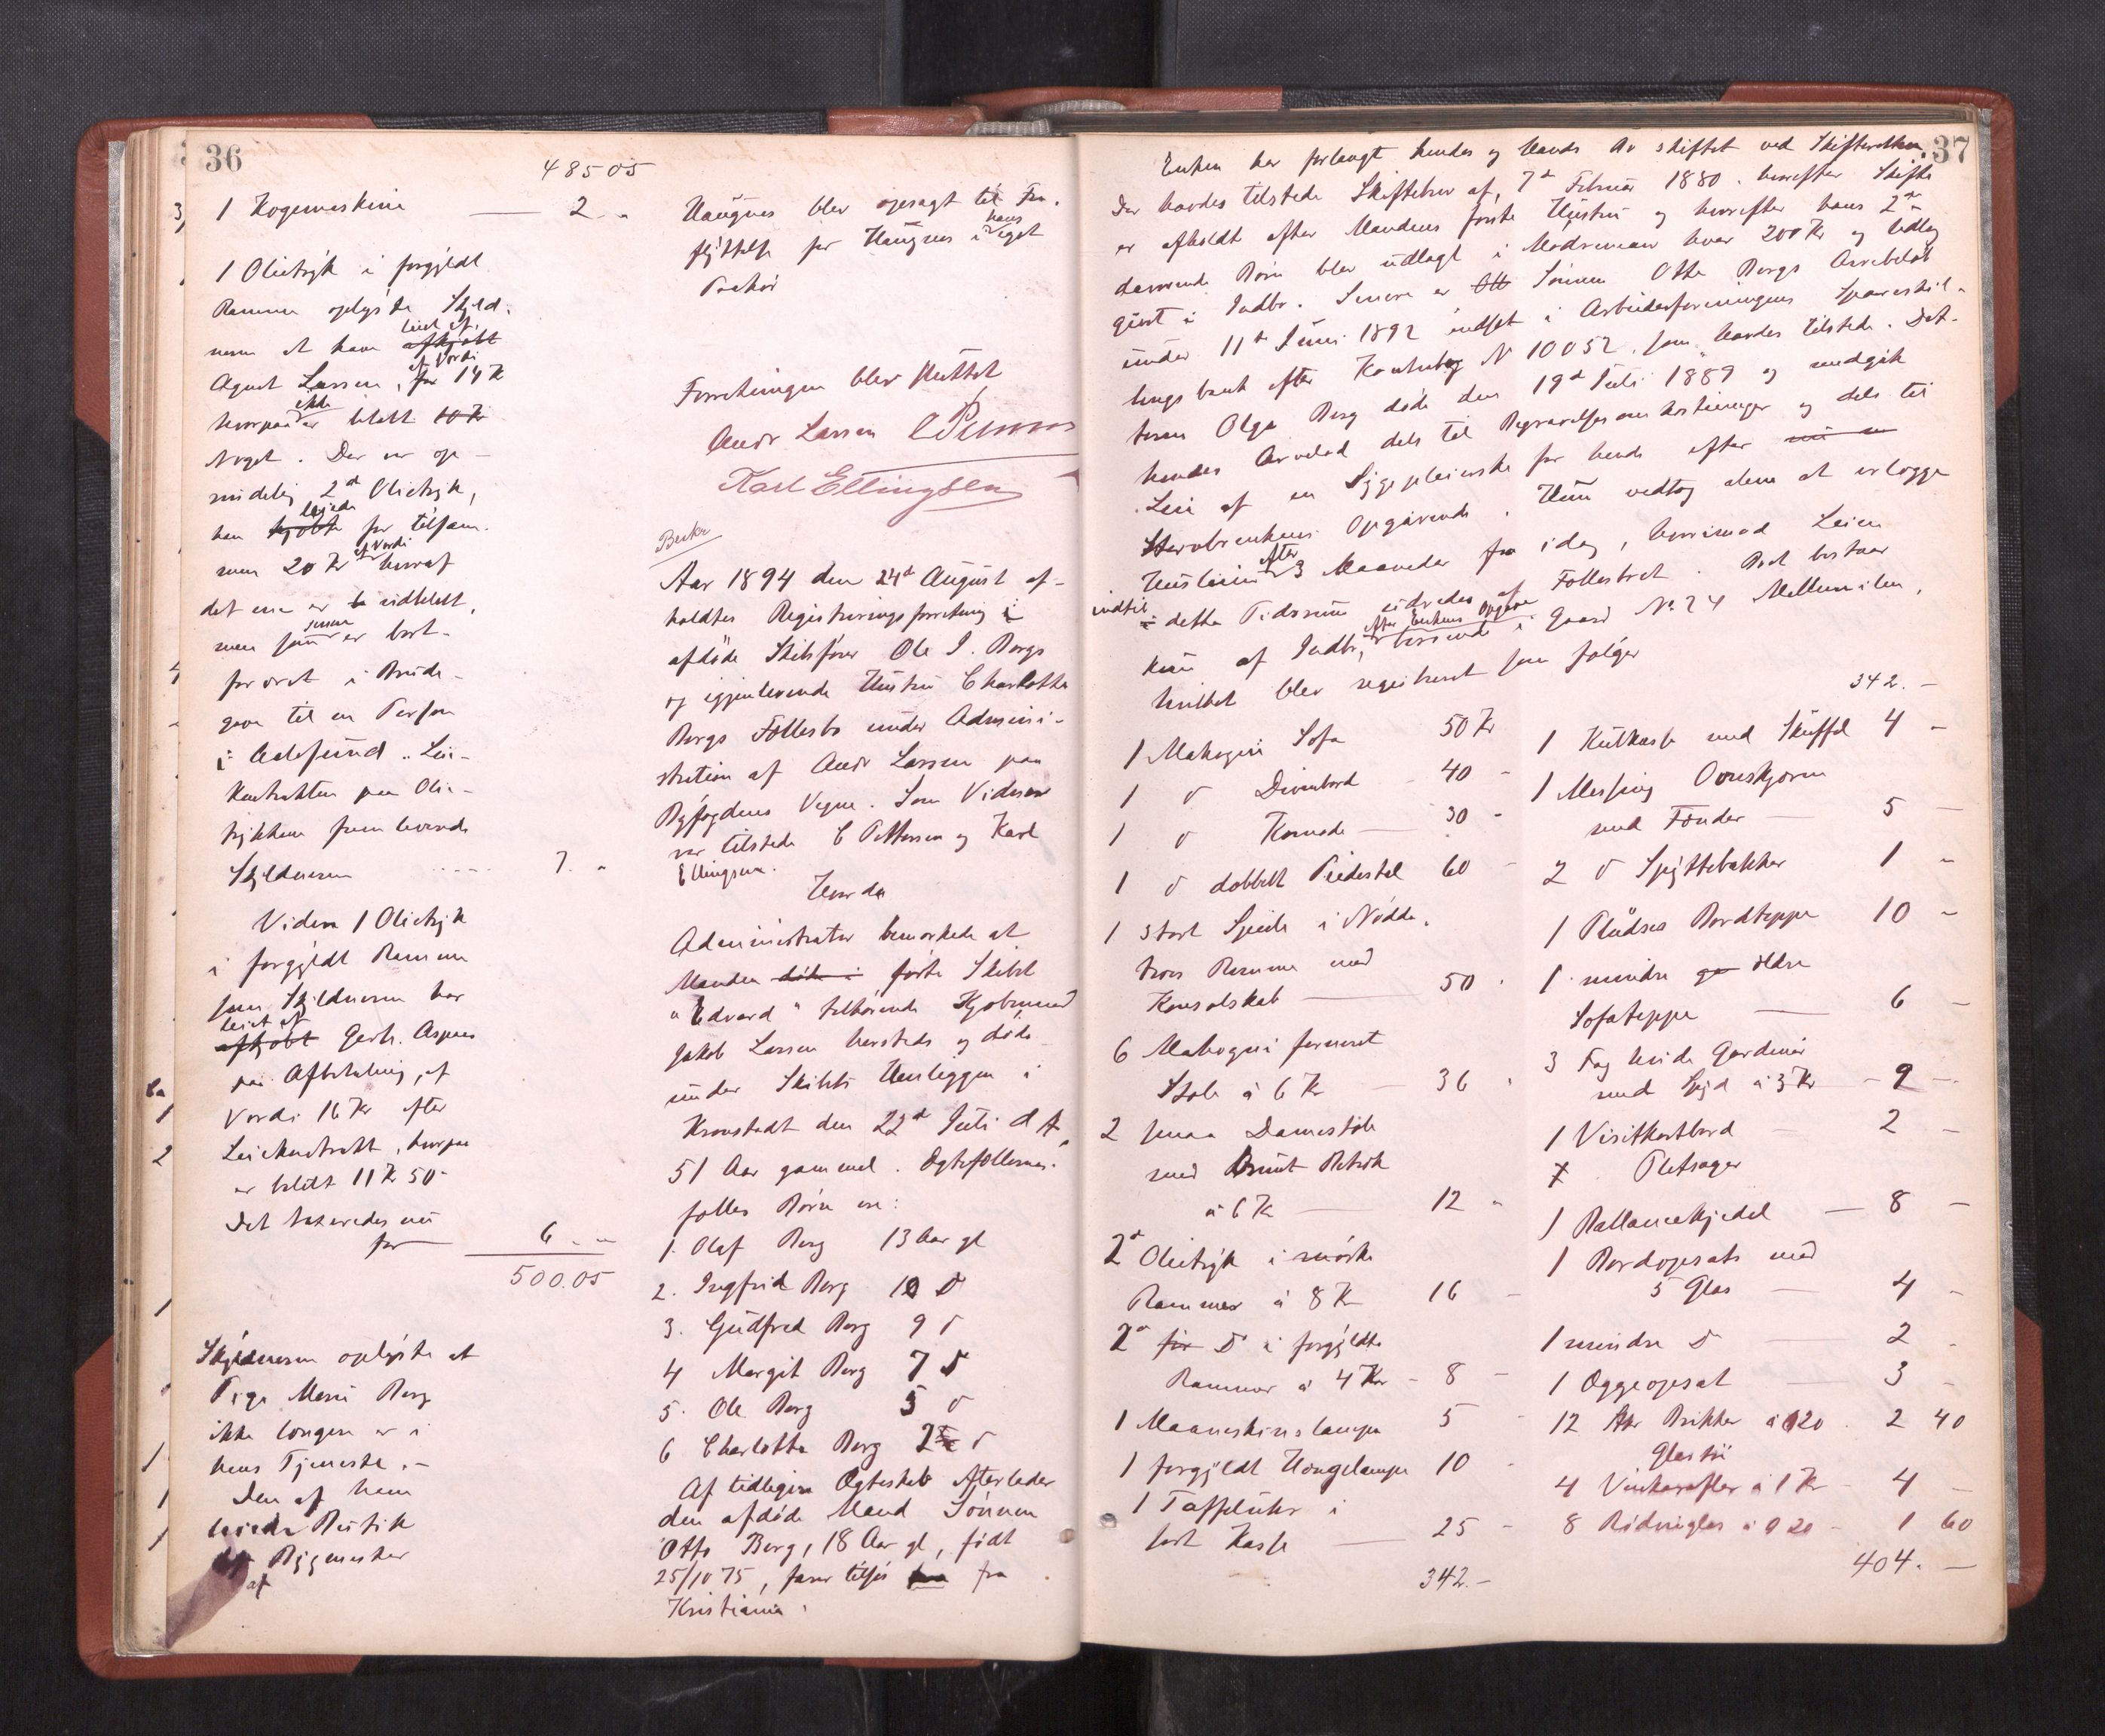 36
485 05
1 Kogemaskine — 2 "
1 Olietryk i forgyldt
Ramme oplyste Skyld-
neren at have afkjøbt
leiet af
Agent Larsen, for 14 K
af Værdi
hvorpaa er betalt 10 Kr
ikke
Noget. Der var op-
rindelig 2d Olietryk,
han kjøbte for tilsam-
leiede
men 20 Kr hvoraf
af Værdi
det ene er udbetalt,
men som er bort-
senere
foræret i Brude-
gave til en Person
i Aalesund. Lei-
kontrakten paa Olie-
trykkene fremleverede
Skyldneren ..... 7. "
Videre 1 Olietryk
i forgyldt Ramme
som Skyldneren har
leiet af
afkjøbt Gerh. Aspnes
paa Afbetaling, af
Værdi 16 Kr efter
Leiekontrakt, hvorpaa
er betalt 11 Kr 50
Det taxeredes nu
for — 6 " "
500.05
Skyldneren oplyste at
Pige Marie Berg
ikke længere er i
hans Tjeneste.-
Den af ham
leiede Butik
af Bygmester
af
Haugnes blev opsagt til Fra-
flyttelse for Haugnes i eget
hans
Paahør
Forretningen blev sluttet
Andr Larsen C Petterson
Karl Ellingsen
Berg
Aar 1894 den 24d August af-
holdtes Registreringsforretning i
afdøde Skibsfører Ole J. Bergs
og igjenlevende Hustru Charlotte
Bergs Fællesbo under Admini-
stration af Andr Larsen paa
Byfogdens Vegne. Som Vidner
var tilstede C Pettersen og Karl
Ellingsen.
Hvorda
Administrator bemærkede at
Manden døde i førte Skibet
"Edvard" tilhørende Kjøbmand
Jakob Larsen hersteds og døde
under Skibets Henliggen i
Kronstadt den 22d Juli d A,
51 Aar gammel. Ægtefællernes
fælles Børn er:
1. Olaf Berg 13 Aar gl
2. Ingfrid Berg 10 d
3. Gudfred Berg 9 d
4 Margit Berg 7 d
5. Ole Berg 5 d
6 Charlotte Berg 2 d
Af tidligere Ægteskab efterlader
den afdøde Mand Sønnen
Otto Berg, 18 Aar gl, født
25/10 75, farer tilsjøs fra
Kristiania.
37
Enken har forlangt hendes og Mands Bo skiftet ved Skifteretten.
Der havdes tilstede Skiftebrev af 7d Februar 1880. hvorefter Skifte
er afholdt efter Mandens første Hustru og hvorefter hans 2de
daværende Børn blev udlagt i Mødrenearv hver 200 Kr og Udlæg
givet i Indbo. Senere er Ott Sønnen Otto Bergs Arvebeløb
under 11te Juni 1892 indsat i Arbeiderforeningens Spareskil-
lingsbank efter Kontrabog N 10052, som havdes tilstede. Dat-
teren Olga Berg døde den 19d Juli 1889 og medgik
hendes Arvelod dels til Begravelsesomkostninger og dels til
Leie af en Sygepleierske for hende efter nu en
Stervbroenkens Opgivende. Hun vedtog alene at erlægge
Husleien 3 Maaneder fra idag, hvorimod Leien
efter
indtil dette Tidsrum udredes af Fællesboet. Boet bestaar
kun af Indbo, beroende i Gaard No 24 Mellemveien,
efter Enkens Opgave
hvilket blev registreret som følger
1 Mahogni Sofa 50 Kr
1 d Divanbord - 40 -
1 d Komode — 30 -
1 d dobbelt Piedestal 60 -
1 stort Speil i Nødde-
træs Ramme med
Konsolskab — 50 -
6 Mahogni forneret
Stole á 6 Kr — 36 -
2 smaa Damestole
med brunt Betræk
á 6 K — 12 -
2d Olietryk i mørke
Rammer á 8 K 16 -
2d for D i forgyldte
Rammer á 4 Kr - 8 -
1 Maaneskinslampe 5 -
1 forgyldt Hængelampe 10 -
1 Taffeluhr i
sort Kasse — 25 -
342.-
342.-
1 Kulkasse med Skuffel 4 -
1 Messing Ovnskjærm
med Fender — 5 -
2 d Spyttebakker 1 -
1 Pludses Bordteppe 10 -
1 mindre ga ældre
Sofateppe — 6 -
3 Fag hvide Gardiner
med Spyd á 3 Kr - 9 -
1 Visitkortbord — 2 -
Pletsager
1 Ballancekjedel — 8 -
1 Bordopsats med
5 Glas — 4 -
1 mindre D — 2 -
1 Eggeopsat — 3 -
12 Brikker á 0 20 . 2 40
Glastøi
4 Vinkarafler á 1 Kr - 4 -
8 Rødvinglas á 0 20 - 1 60
404. -